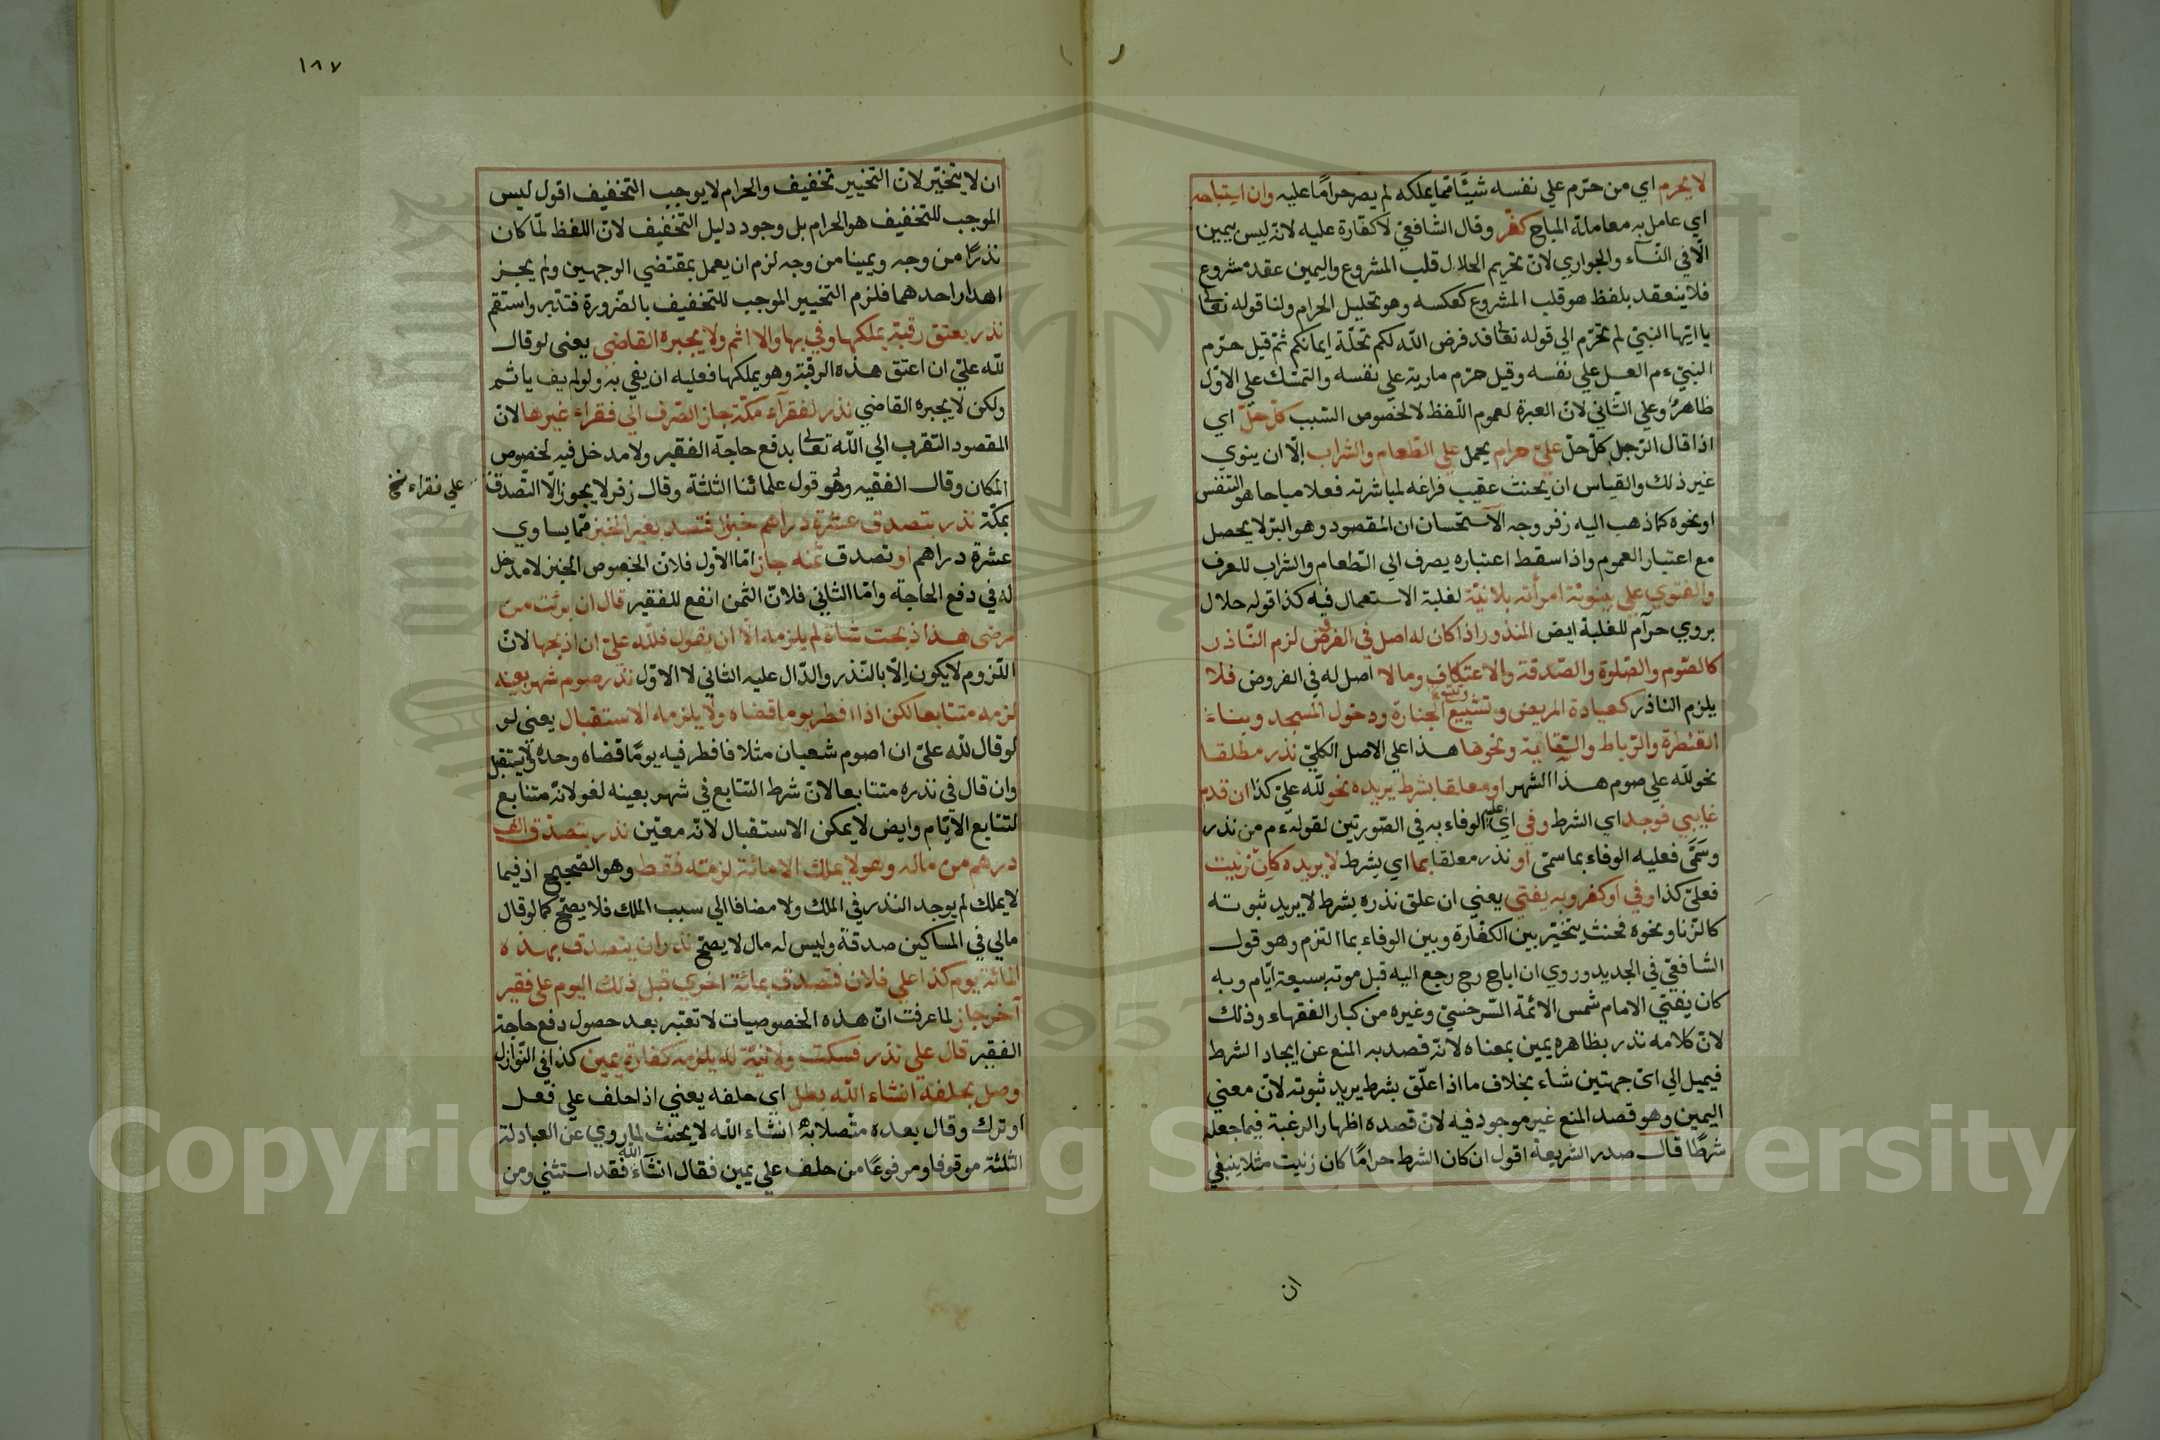 ١٨٧
لا يحرم اي من حرّم علي نفسه شيًا مما يملكه لم يصر حرامًا عليه وان استباحه
اي عامل به معاملة المباح كفّر وقال الشافعيّ لا كفارة عليه لانّه ليس بيمين
الّا في النسآء والجواري لانّ تحريم الحلال قلب المشروع واليمين عقد مشروع
فلا ينعقد بلفظ هو قلب المشروع كعكسه وهو تحليل الحرام ولنا قوله تعالى
يا ايّها النبيّ لم تحرّم الي قوله تعالى قد فرض الله لكم تحلّة ايمانكم ثمّ قيل حرّم
النبيّ ءم العسل علي نفسه وقيل حرّم مارية علي نفسه والتمسّك علي الاوّل
ظاهرٌ وعلي الثّاني لانّ العبرة لعموم اللّفظ لا لخصوص السّبب كلّ حلّ اي
اذا قال الرّجل كلّ حلّ عليّ حرام يحمل علي الطّعام والشراب إلّا ان ينوي
غير ذلك والقياس ان يحنث عقيب فراغه لمباشرته فعلا مباحا هو التنفس
او نحوه كما ذهب اليه زفر وجه الاستحسان ان المقصود وهو البرّ لا يحصل
مع اعتبار العموم واذا سقط اعتباره يصرف الي الطّعام والشراب للعرف
والفتوي علي بينونة امرأته بلا نيّة لغلبة الاستعمال فيه كذا قوله حلال
بروي حرام للغلبة ايض المنذور اذا كان له اصل في الفرض لزم النّاذر
كالصّوم والصّلوة والصّدقة والاعتكاف وما لا اصل له في الفروض فلا
يلزم الناذر كعيادة المريض وتشييع الجنازة ودخول المسجد وبناء
القنطرة والرّباط والسّقاية ونحوها هذا علي الاصل الكليّ نذر مطلقا
نحو لله علي صوم هذا الشهر او معلقا بشرط يريده نحو لله عليّ كذا ان قدم
غايبي فوجد اي الشرط وفي اي عليه الوفاء به في الصّورتين لقوله ءم من نذر
وسَمَّى فعليه الوفاء بما سمّى او نذر معلقا بما اي بشرط لا يريده كان زنيت
فعليّ كذا وفي او كفر وبه يفتي يعني ان علق نذره بشرط لا يريد ثبوته
كالزّنا ونحوه فحنث يتخيّر بين الكفّارة وبين الوفاء بما التزم وهو قول
الشّافعيّ في الجديد وروي ان اباح رح رجع اليه قبل موته بسبعة ايّام وبه
كان يفتي الامام شمس الائمة السّرخسيّ وغيره من كبار الفقهاء وذلك
لانّ كلامه نذر بظاهره يمين بمعناه لانّه قصد به المنع عن ايجاد الشرط
فيميل الي ايّ جهتين شاء بخلاف ما اذا علّق بشرط يريد ثبوته لانّ معني
اليمين وهو قصد المنع غير موجود فيه لانّ قصده اظهار الرغبة فيما جعله
شرطًا قال صدر الشريعة اقول ان كان الشرط حرامًا كان زنيت مثلا ينبغي
ان
ان لا يتخيّر لانّ التخيير تخفيف والحرام لا يوجب التخفيف اقول ليس
الموجب للتخفيف هو الحرام بل وجود دليل التخفيف لانّ اللفظ لمّا كان
نذرًا من وجه ويمينا من وجه لزم ان يعمل بمقتضي الوجهين ولم يجز
اهدار احدهما فلزم التخيير الموجب للتخفيف بالضّرورة فتدبّر واستقم
نذر بعتق رقبة يملكها وفي بها والا اثم ولا يجبره القاضي يعني لو قال
لله عليّ ان اعتق هذه الرقبة وهو يملكها فعليه ان يفي به ولو لم يف ياثم
ولكن لا يجبره القاضي نذر لفقرآء مكّة جاز الصّرف الي فقراء غيرها لانّ
المقصود التقرب الي الله تعالى بدفع حاجة الفقير ولا مدخل فيه لخصوص
المكان وقال الفقيه وهو قول علمائنا الثلثة وقال زفر لا يجوز الّا التّصدق
علي فقراء نخ
بمكّة نذر بتصدق عشرة دراهم خبزًا فتصدق بغير الخبز ممّا يساوي
عشرة دراهم او تصدق ثمنه جاز امّا الاوّل فلانّ الخصوص الخبز لا مدخل
له في دفع الحاجة وامّا الثّاني فلانّ الثمن انفع للفقير قال ان برئت من
مرضي هذا ذبحت شاة لم يلزمه الّا ان يقول فللّه عليّ ان اذبحها لانّ
اللّزوم لا يكون إلّا بالنّذر والدّال عليه الثاني لا الاوّل نذر صوم شهر بعينه
لزمه متتابعا لكن اذا افطر يوما قضاه ولا يلزمه الاستقبال يعني لو
لو قال لله عليّ ان اصوم شعبان مثلا فافطر فيه يومًا قضاه وحده ولا يستقبل
وان قال في نذره متتابعا لانّ شرط التتابع في شهر بعينه لغو لانّه متتابع
لتتابع الايّام وايض لا يمكن الاستقبال لانّه معيّن نذر بتصدّق الف
درهم من ماله وهو لا يملك الا مائة لزمته فقط وهو الصّحيح اذ فيما
لا يملك لم يوجد النذر في الملك ولا مضافا الي سبب الملك فلا يصحّ كما لو قال
مالي في المساكين صدقة وليس له مال لا يصحّ نذر ان يتصدق بهذه
المائة يوم كذا علي فلان فتصدق بمائة اخري قبل ذلك اليوم على فقير
آخر جاز لما عرفت انّ هذه الخصوصيات لا تعتبر بعد حصول دفع حاجة
الفقير قال علي نذر فسكت ولا نيّة له يلزمه كفارة يمين كذا في النّوازل
وصل بحلفه انشاء الله بطل اي حلفه يعني اذا حلف علي فعل
او ترك وقال بعده متّصلا به انشاء الله لا يحنث لما روي عن العبادلة
الثلثة موقوفا ومرفوعًا من حلف علي يمين فقال انشآء الله فقد استثني ومن
Copyright © King Saud University
1957